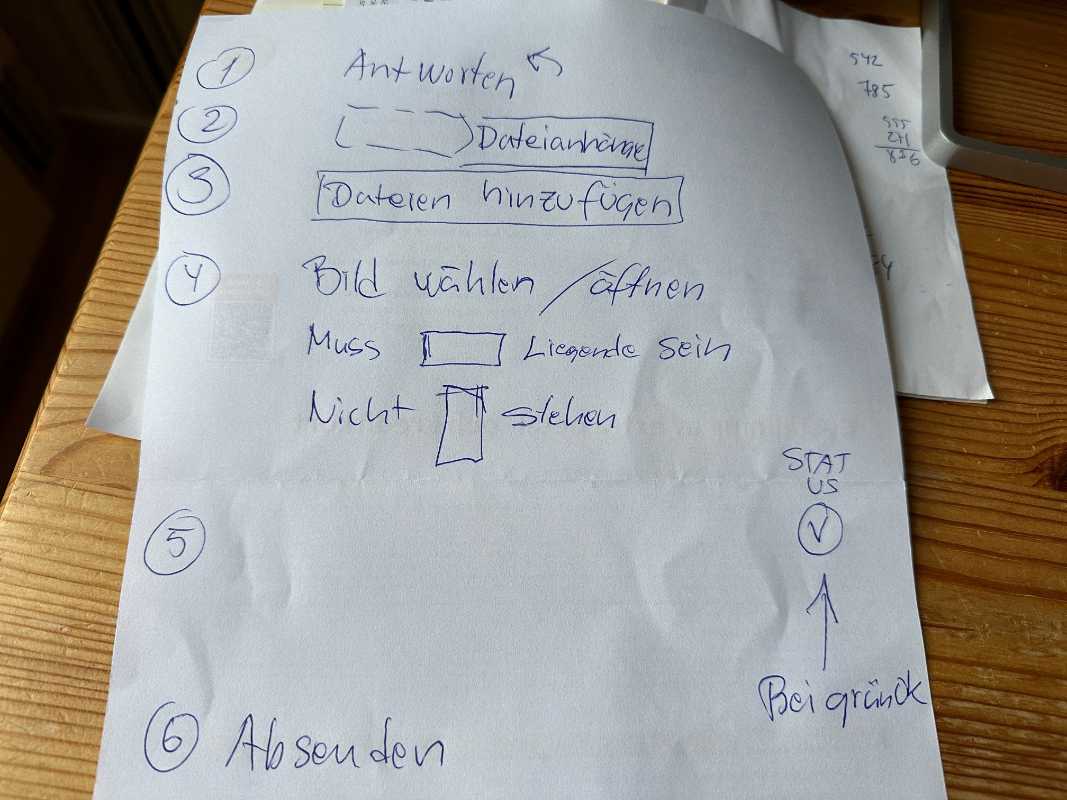 1 Antworten
2 Dateianhänge
3 Dateien hinzufügen
4 Bild wählen / äffnen
Muss Liegende sein
Nicht stehen
STAT
US
5
Bei grünck
6 Absenden
542
785
555
271
826